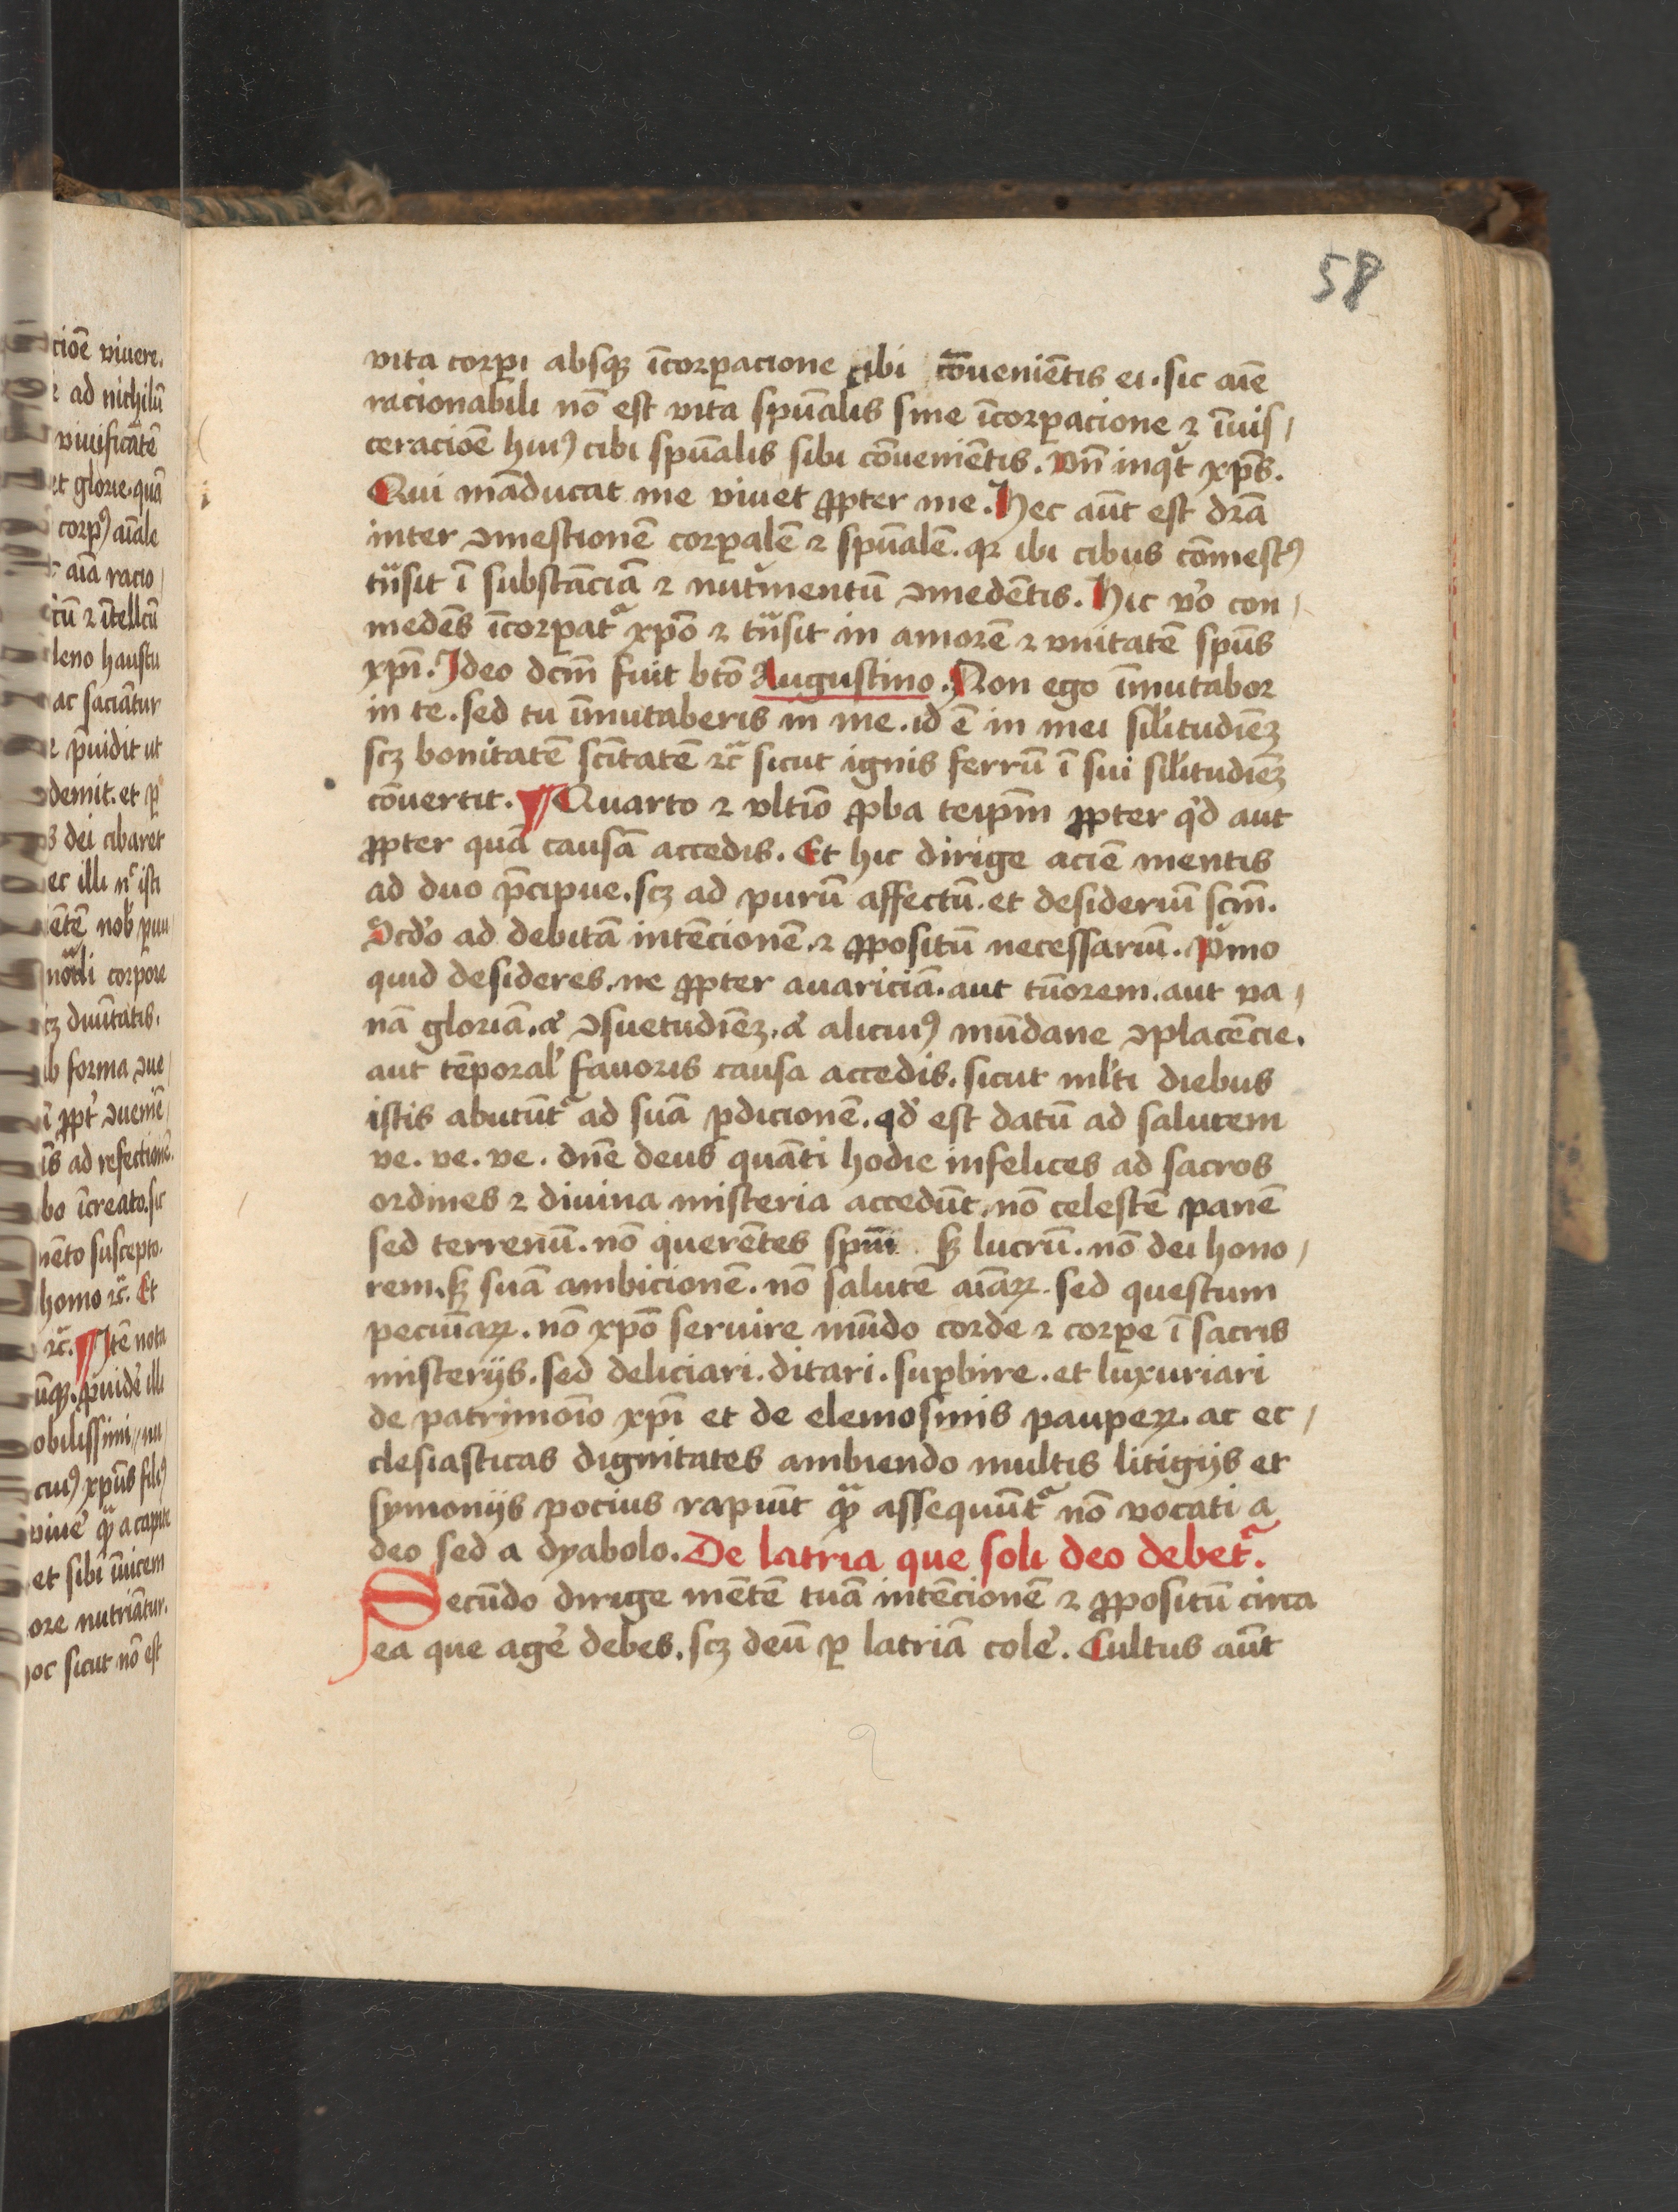 58
vita corpi absqꝫ īcorpacione cibi cōueniētis ei. sic aīe
racionabili nō est vita spūalis sine īcorpacione ⁊ īuis/
ceracioē huiꝰ cibi spūalis sibi cōueniētis. Vn̄ inqͥt xp̄s.
Qui māducat me viuet ꝓpter me. Hec aūt est dr̄a
inter ꝯmestionē corpalē ⁊ spūalē. qꝛ ibi cibus cōmestꝰ
tͣnsit ī substāciā ⁊ nutͥmentū ꝯmedētis. Hic v̓o con/
medēs īcorpatᷣ xp̄o ⁊ tͣnsit in amorē ⁊ vnitatē spūs
xp̄i. Ideo dc̄m fuit btō Augustino. Non ego īmutabor
in te. sed tu īmutaberis in me. id ē in mei sil̓itudiēꝫ
scꝫ bonitatē sc̄itatē ⁊c̄ sicut ignis ferrū ī sui sil̓itudiēꝫ
cōuertit. ¶ Quarto ⁊ vltīo ꝓba teip̄m ꝓpter qͥd aut
ꝓpter quā causā accedis. Et hic dirige aciē mentis
ad duo p̄cipue. scꝫ ad purū affectū. et desideriū sc̄m.
Scd̓o ad debitā intēcionē. ⁊ ꝓpositū necessariū. Pͥmo
quid desideres. ne ꝓpter auariciā. aut tīorem. aut va/
nā gloriā. aͭ ꝯsuetudiēꝫ. aͭ alicuiꝰ mūdane ꝯplacēcie.
aut tēporal̓ fauoris causa accedis. sicut ml̓ti diebus
istis abutūtᷣ ad suā ꝑdicionē. qd̓ est datū ad salutem
ve. ve. ve. dn̄e deus quāti hodie infelices ad sacros
ordines ⁊ diuina misteria accedūt. nō celestē panē
sed terrenū. nō querētes spm̄ sꝫ lucrū. nō dei hono/
rem. sꝫ suā ambicionē. nō salutē aīaꝝ. sed questum
pecuniaꝝ. nō xp̄o seruire mūdo corde ⁊ corpe ī sacris
misterijs. sed deliciari. ditari. suꝑbire. et luxuriari
de patrimoīo xp̄i et de elemosinis paupeꝝ. ac ec/
clesiasticas dignitates ambiendo multis litigijs et
symonijs pocius rapiūt qͣꝫ assequūtᷣ nō vocati a
deo sed a dyabolo. De latria que soli deo debetᷣ.
Secūdo dirige mētē tuā intēcionē ⁊ ꝓpositū circa
ea que age̓ debes. scꝫ deū ꝑ latriā cole̓. Cultus aūt